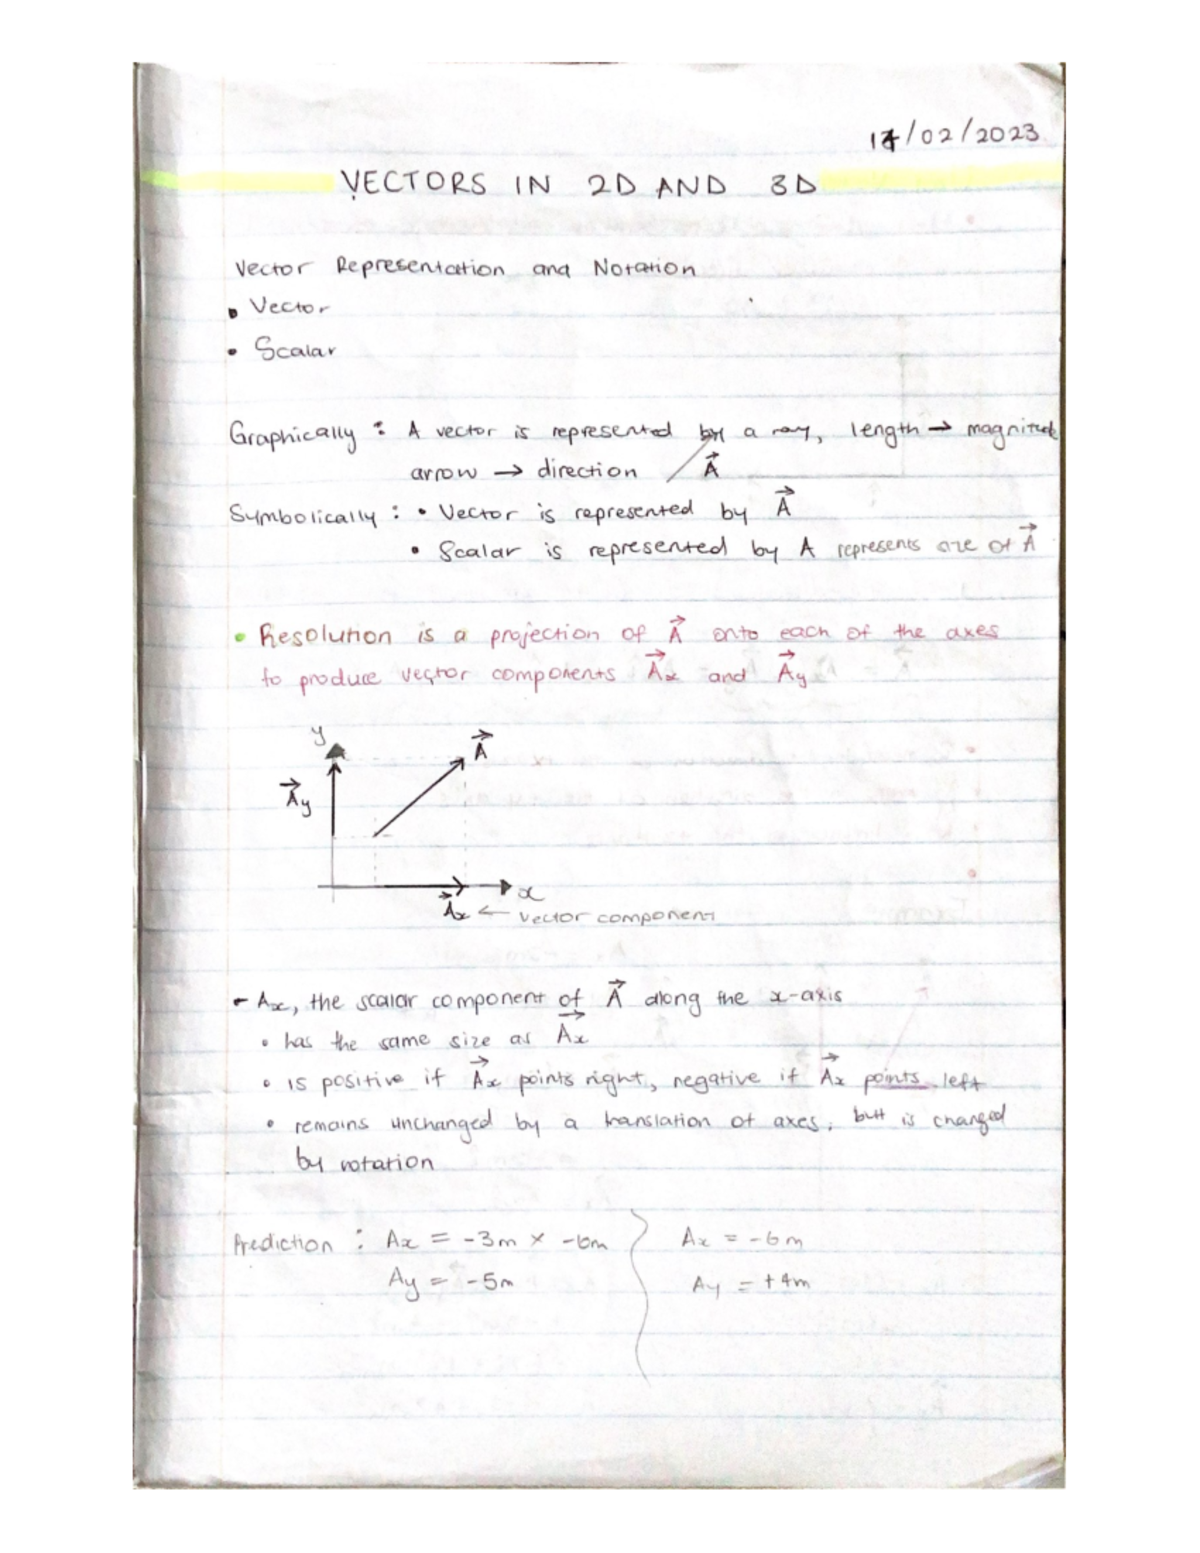 14/02/2023
VECTORS IN 2D AND 3D
Vector Representation and Notation
• Vector
• Scalar
Graphically : A vector is represented by a ray, length → magnitude
arrow → direction A⃗
Symbolically : • Vector is represented by A⃗
• Scalar is represented by A represents size of A⃗
• Resolution is a projection of A⃗ onto each of the axes
to produce vector components A⃗x and A⃗y
y
A⃗
A⃗y
x
A⃗x ← vector component
- Ax, the scalar component of A⃗ along the x-axis
• has the same size as A⃗x
• is positive if A⃗x points right, negative if A⃗x points left
• remains unchanged by a translation of axes, but is changed
by rotation
Prediction : Ax = -3m × -6m
Ay = -5m
Ax = -6m
Ay = +4m